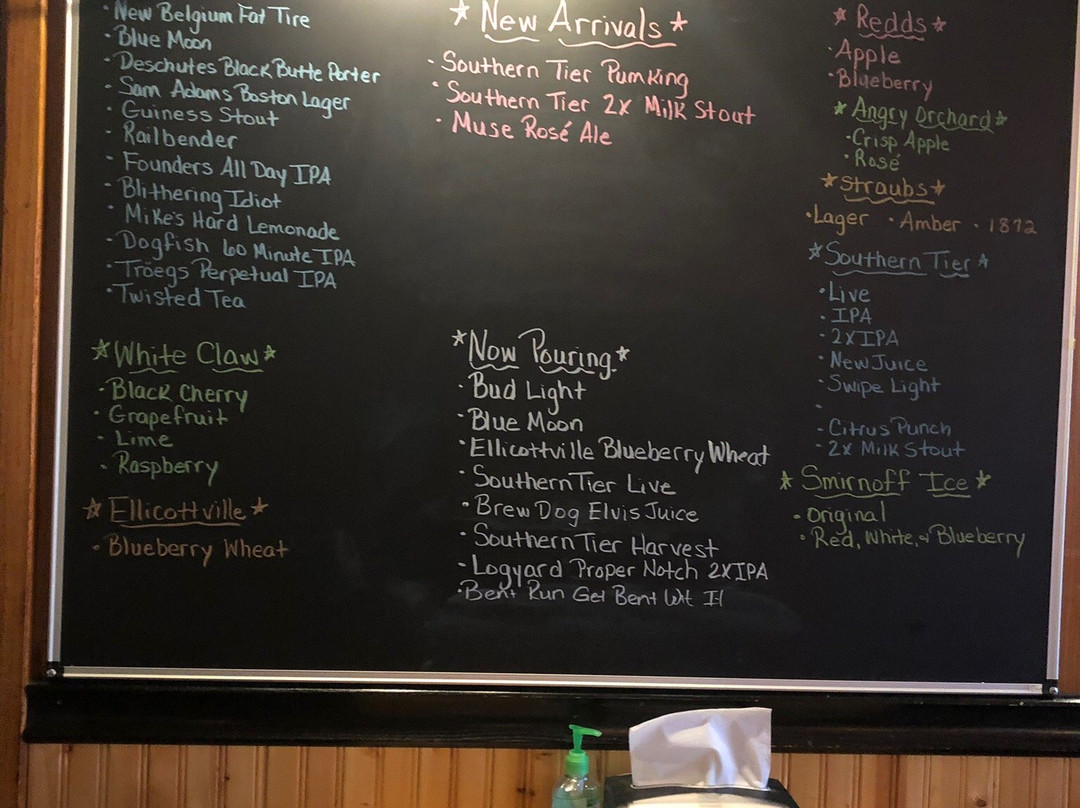 · New Belgium Fat Tire
· Blue Moon
· Deschutes Black Butte Porter
· Sam Adams Boston Lager
· Guiness Stout
· Railbender
· Founders All Day IPA
· Blithering Idiot
· Mike's Hard Lemonade
· Dogfish 60 Minute IPA
· Tröegs Perpetual IPA
· Twisted Tea
*White Claw*
· Black Cherry
· Grapefruit
· Lime
· Raspberry
*Ellicottville*
· Blueberry Wheat
* New Arrivals *
· Southern Tier Pumking
· Southern Tier 2x Milk Stout
· Muse Rosé Ale
*Now Pouring*
· Bud Light
· Blue Moon
· Ellicottville Blueberry Wheat
· Southern Tier Live
· Brew Dog Elvis Juice
· Southern Tier Harvest
· Logyard Proper Notch 2XIPA
· Bent Run Get Bent Wit It
* Redds *
· Apple
· Blueberry
* Angry Orchard *
· Crisp Apple
· Rosé
*Straubs*
· Lager · Amber · 1872
*Southern Tier*
· Live
· IPA
· 2XIPA
· New Juice
· Swipe Light
·
· Citrus Punch
· 2x Milk Stout
* Smirnoff Ice *
· Original
· Red, White, & Blueberry